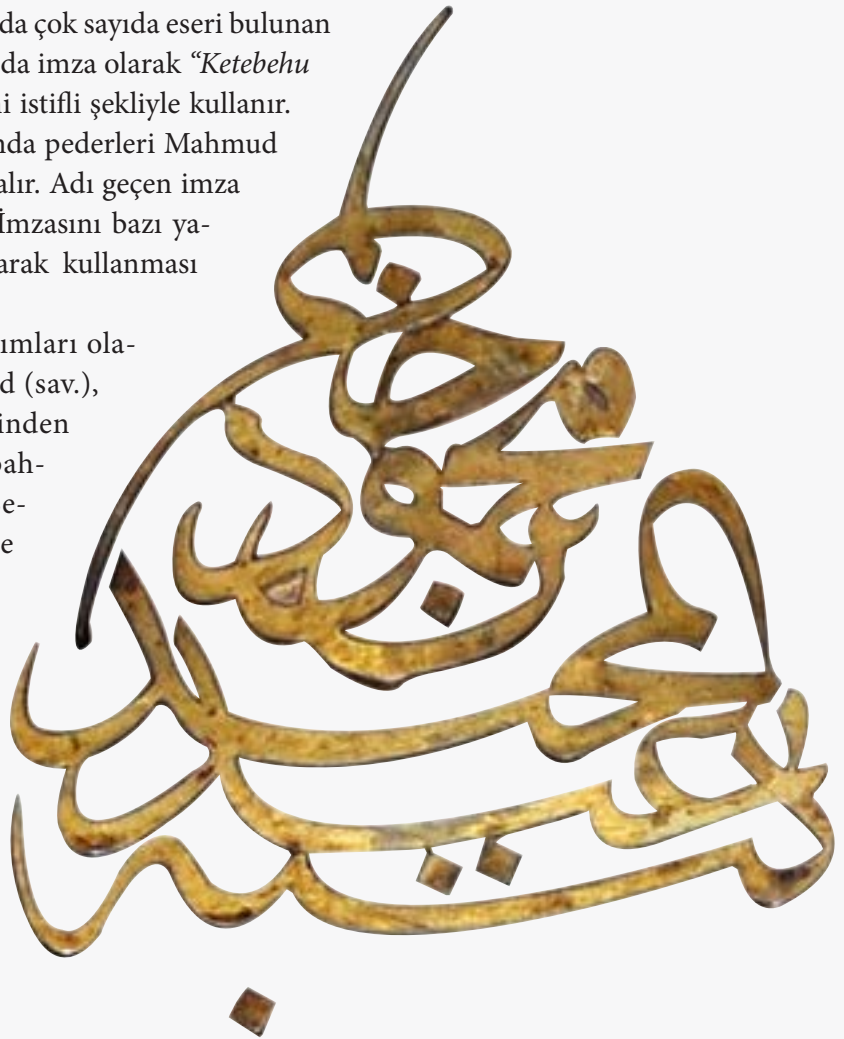 da çok sayıda eseri bulunan
da imza olarak “Ketebehu
ni istifli şekliyle kullanır.
nda pederleri Mahmud
alır. Adı geçen imza
İmzasını bazı ya-
arak kullanması
ımları ola-
d (sav.),
inden
bah-
e-
e
كتبه
عبد المجيد
بن محمود
خان